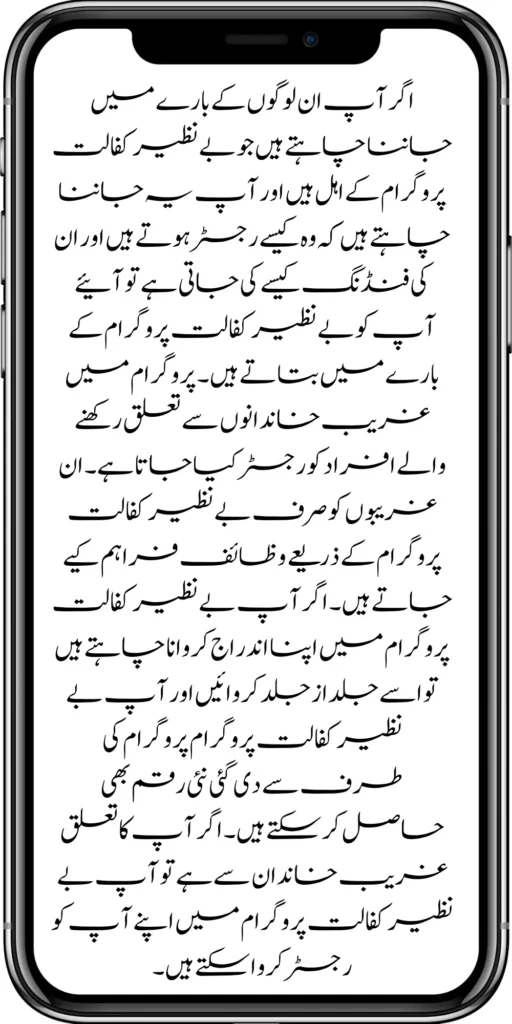 اگر آپ ان لوگوں کے بارے میں
جاننا چاہتے ہیں جو بے نظیر کفالت
پروگرام کے اہل ہیں اور آپ یہ جاننا
چاہتے ہیں کہ وہ کیسے رجسٹر ہوتے ہیں اور ان
کی فنڈنگ کیسے کی جاتی ہے تو آئیے
آپ کو بے نظیر کفالت پروگرام کے
بارے میں بتاتے ہیں۔ پروگرام میں
غریب خاندانوں سے تعلق رکھنے
والے افراد کو رجسٹر کیا جاتا ہے۔ ان
غریبوں کو صرف بے نظیر کفالت
پروگرام کے ذریعے وظائف فراہم کیے
جاتے ہیں۔ اگر آپ بے نظیر کفالت
پروگرام میں اپنا اندراج کروانا چاہتے ہیں
تو اسے جلد از جلد کروائیں اور آپ بے
نظیر کفالت پروگرام پروگرام کی
طرف سے دی گئی نئی رقم بھی
حاصل کر سکتے ہیں۔ اگر آپ کا تعلق
غریب خاندان سے ہے تو آپ بے
نظیر کفالت پروگرام میں اپنے آپ کو
رجسٹر کروا سکتے ہیں۔